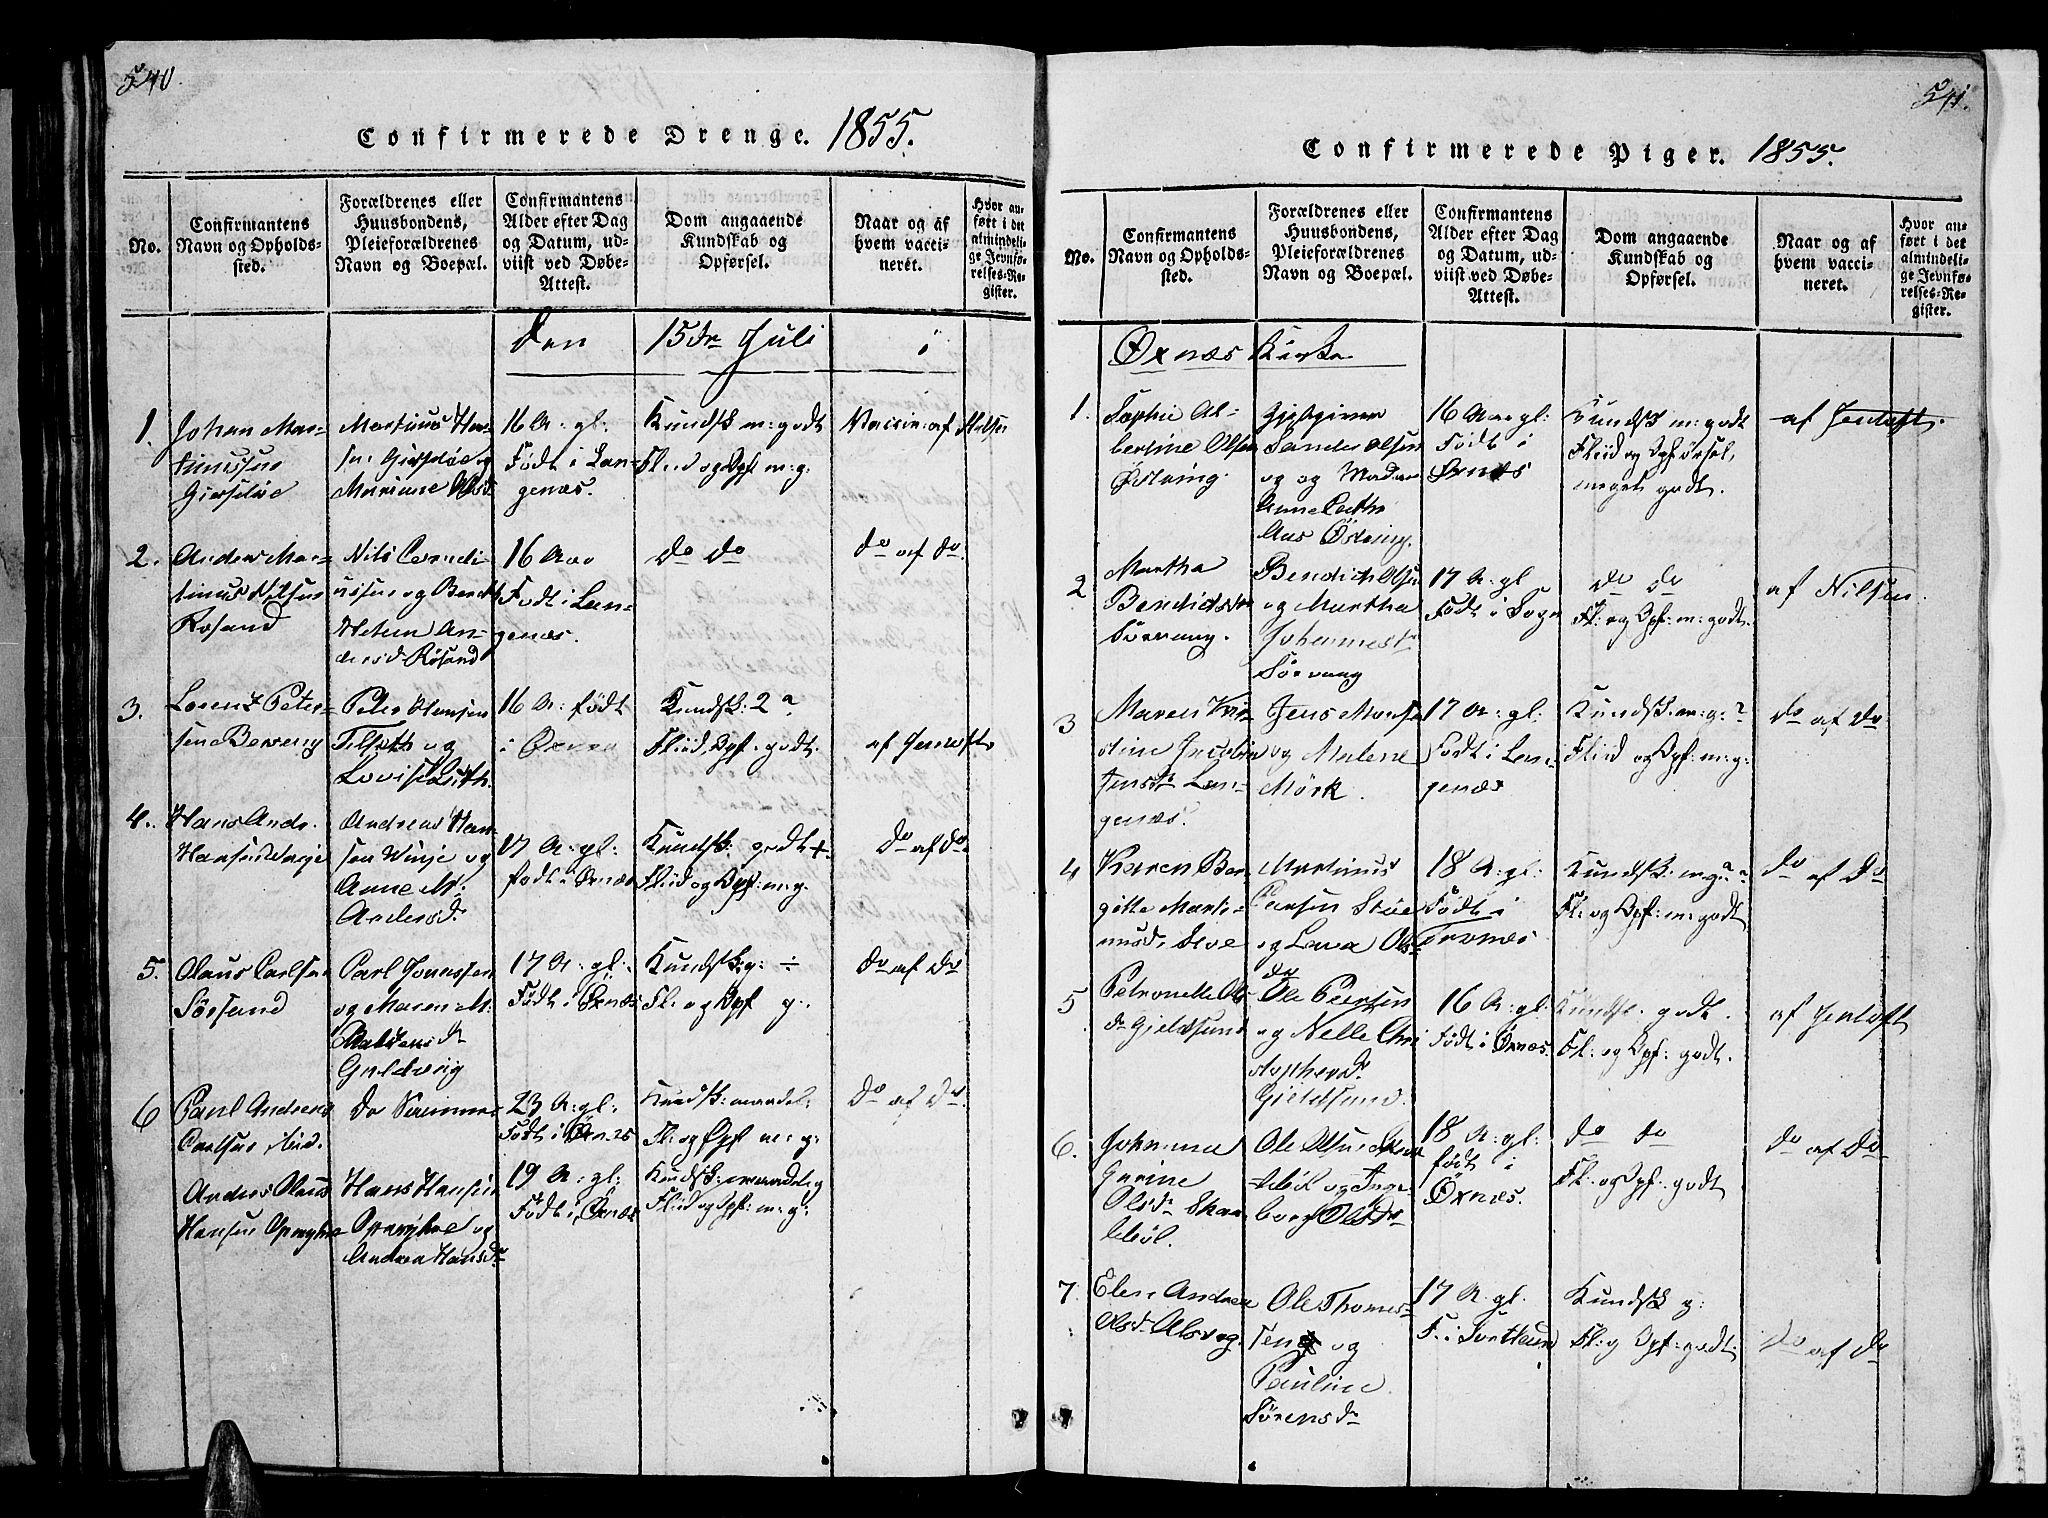 540.
Confirmerede Drenge. 1855.
No.
Confirmantens
Navn og Opholds-
sted.
Forældrenes eller
Huusbondens,
Pleieforældrenes
Navn og Boepæl.
Confirmantens
Alder efter Dag
og Datum, ud-
viist ved Døbe-
Attest.
Dom angaaende
Kundskab og
Opførsel.
Naar og af
hvem vacci-
neret.
Hvor an-
ført i det
almindeli-
ge Jevnfø-
relses-Re-
gister.
Den 15de Juli i
1.
Johan Mar-
tinussen
Martinus Han-
sen og
Mariane Olsd
16 A: gl:
Født i Lan-
genæs.
Kundsk m: godt
Flid og Opf m: g:
Vaccin: af Nilsen
2.
Anders Mar-
tinus Nilsen
Rosand
Nils Corneli-
ussen og Berit
Helena An-
dersd Rosand
16 Aar
Født i Lan-
genæs.
Do Do
Do af Do
3.
Lorentz Peter-
sen
Peter Hensen
og
Lovise
16 A: født
i Øxnes
Kundsk: 2
Fliid. Opf. godt.
af Jentoft
4.
Hans Andr.
Hansen Winje
Andreas Han-
sen Winje og
Anne M:
Andersd
17 A: gl:
født i Øxnæs
Kundsk: godt +
Fliid og Opf: m: g.
Do af Do
5.
Olaus Carlsen
Sørsand
Carl Jonassen
og Maren M:
Guldving
17 A: gl:
Født i Øxnæs
Kundsk: g: ÷
Fl: og Opf g:
Do af Do
6
Paul Andreas
Carlsen ibid.
De Samme
23 A: gl:
Født i Øxnes
Kundsk: maadel:
Fl: og Opf m: g:
Do af Do
Andreas Olaus
Hansen
Hans Hansen
og
Andrea Hansdr
19 A: gl:
Født i Øxnæs
Kundsk: maadelig
Fliid og Opf: m: g:
541.
Confirmerede Piger. 1855.
No.
Confirmantens
Navn og Opholds-
sted.
Forældrenes eller
Huusbondens,
Pleieforældrenes
Navn og Boepæl.
Confirmantens
Alder efter Dag
og Datum, ud-
viist ved Døbe-
Attest.
Dom angaaende
Kundskab og
Opførsel.
Naar og af
hvem vacci-
neret.
Hvor an-
ført i det
almindeli-
ge Jevnfø-
relses-Re-
gister.
Øxnæs Kirke
1.
Sophie Al-
bertine Olsen
Østving
Gjestgiver
Sander Olsen
og og Madam
Anne
Aas Østving.
16 Aar gl:
Født i
Øxnæs
Kundsk m: godt
Fliid og Opførsel,
meget godt.
af Jentoft.
2
Martha
Bendiksdr
Sørvang.
Bendik Olsen
og Martha
Johannesd
Sørvang
17 A: gl
Født i Sogn
Do Do
Fl: og Opf: m: godt.
af Nilsen
3
Maren Kri-
stine
Jensdr Lan-
genæs.
Jens
og Malene
Mörk.
17 A: gl:
Født i Lan-
genæs
Kundsk: m: g: ?
Fliid og Opf: m: g:
Do af Do
4
Karen Ber-
gitte Marti-
nusd. Støe
Martinus
Larsen Støe
og Lava Ols-
dr
18 A: gl:
Født i
Kundsk: m: g:
Fl: og Opf: m: godt
Do af Do
5
Petronelle Ols
dr Gjeldsund
Ole Peersen
og Nelle Chri
stophersdr
Gjeldsund.
16 A: gl:
Født i Øxnæs.
Kundsk. godt.
Fl: og Opf: godt.
af Jentoft
6.
Johanna
Gurine
Olsdr Skar-
Ole Olsen
og Inge-
borg Olsdr
18 A: gl:
født i
Øxnæs.
Do Do
Fl: og Opf: godt
Do af Do
7
Elen Andrea
Olsd Alsvog.
Ole Thomes-
sen og
Pauline
Sørensdr
17 A: gl.
F. i Sortland
Kundsk g:
Fl: og Opf: godt:
Do af Do